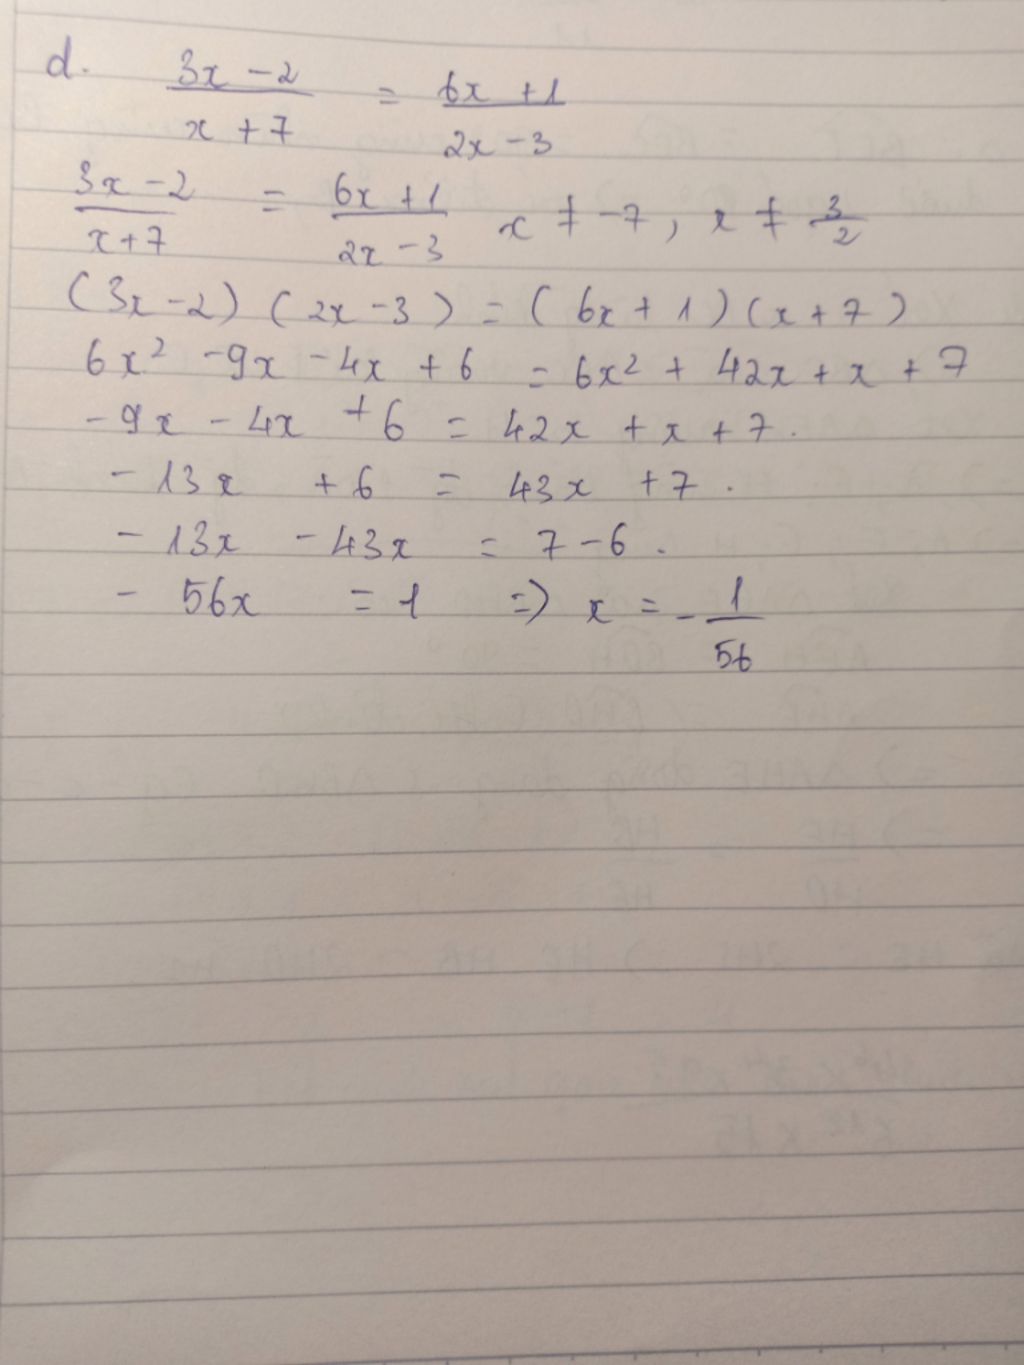 d. \frac{3x-2}{x+7} = \frac{6x+1}{2x-3}
\frac{3x-2}{x+7} = \frac{6x+1}{2x-3} x ≠ -7, x ≠ \frac{3}{2}
(3x-2)(2x-3) = (6x+1)(x+7)
6x² -9x -4x +6 = 6x² + 42x + x + 7
-9x - 4x +6 = 42x + x + 7.
-13x +6 = 43x +7.
-13x -43x = 7-6.
-56x = 1 => x = -\frac{1}{56}